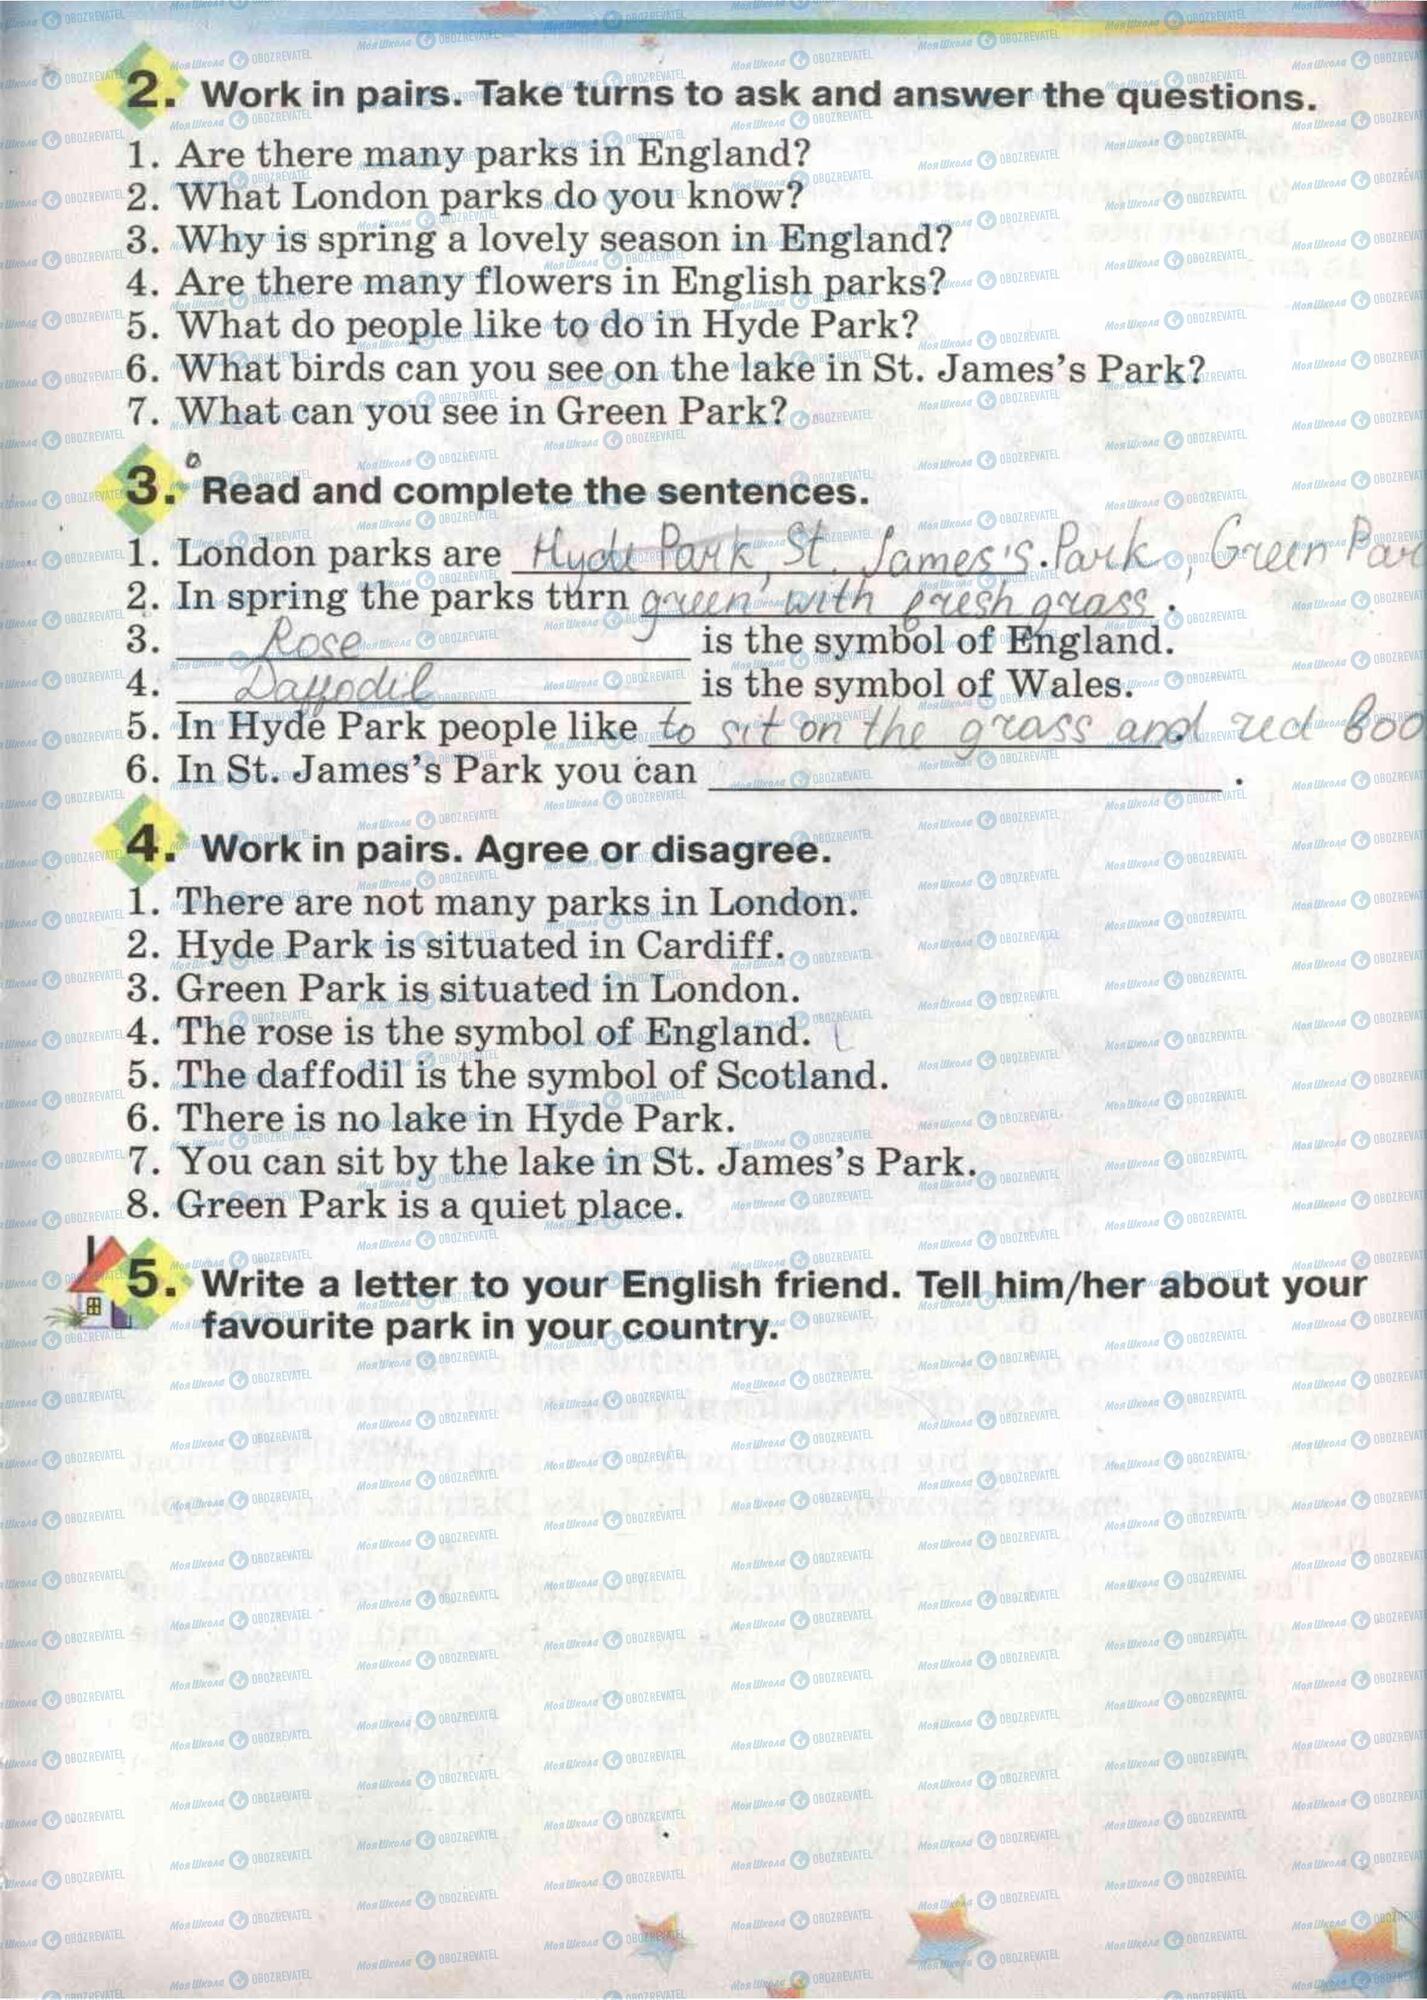 2. Work in pairs. Take turns to ask and answer the questions.
1. Are there many parks in England?
2. What London parks do you know?
3. Why is spring a lovely season in England?
4. Are there many flowers in English parks?
5. What do people like to do in Hyde Park?
6. What birds can you see on the lake in St. James's Park?
7. What can you see in Green Park?
3. Read and complete the sentences.
1. London parks are Hyde Park, St. James's Park, Green Par
2. In spring the parks turn green with fresh grass.
3. Rose is the symbol of England.
4. Daffodil is the symbol of Wales.
5. In Hyde Park people like to sit on the grass and red boo
6. In St. James's Park you can .
4. Work in pairs. Agree or disagree.
1. There are not many parks in London.
2. Hyde Park is situated in Cardiff.
3. Green Park is situated in London.
4. The rose is the symbol of England.
5. The daffodil is the symbol of Scotland.
6. There is no lake in Hyde Park.
7. You can sit by the lake in St. James's Park.
8. Green Park is a quiet place.
5. Write a letter to your English friend. Tell him/her about your
favourite park in your country.
Моя Школа OBOZREVATEL